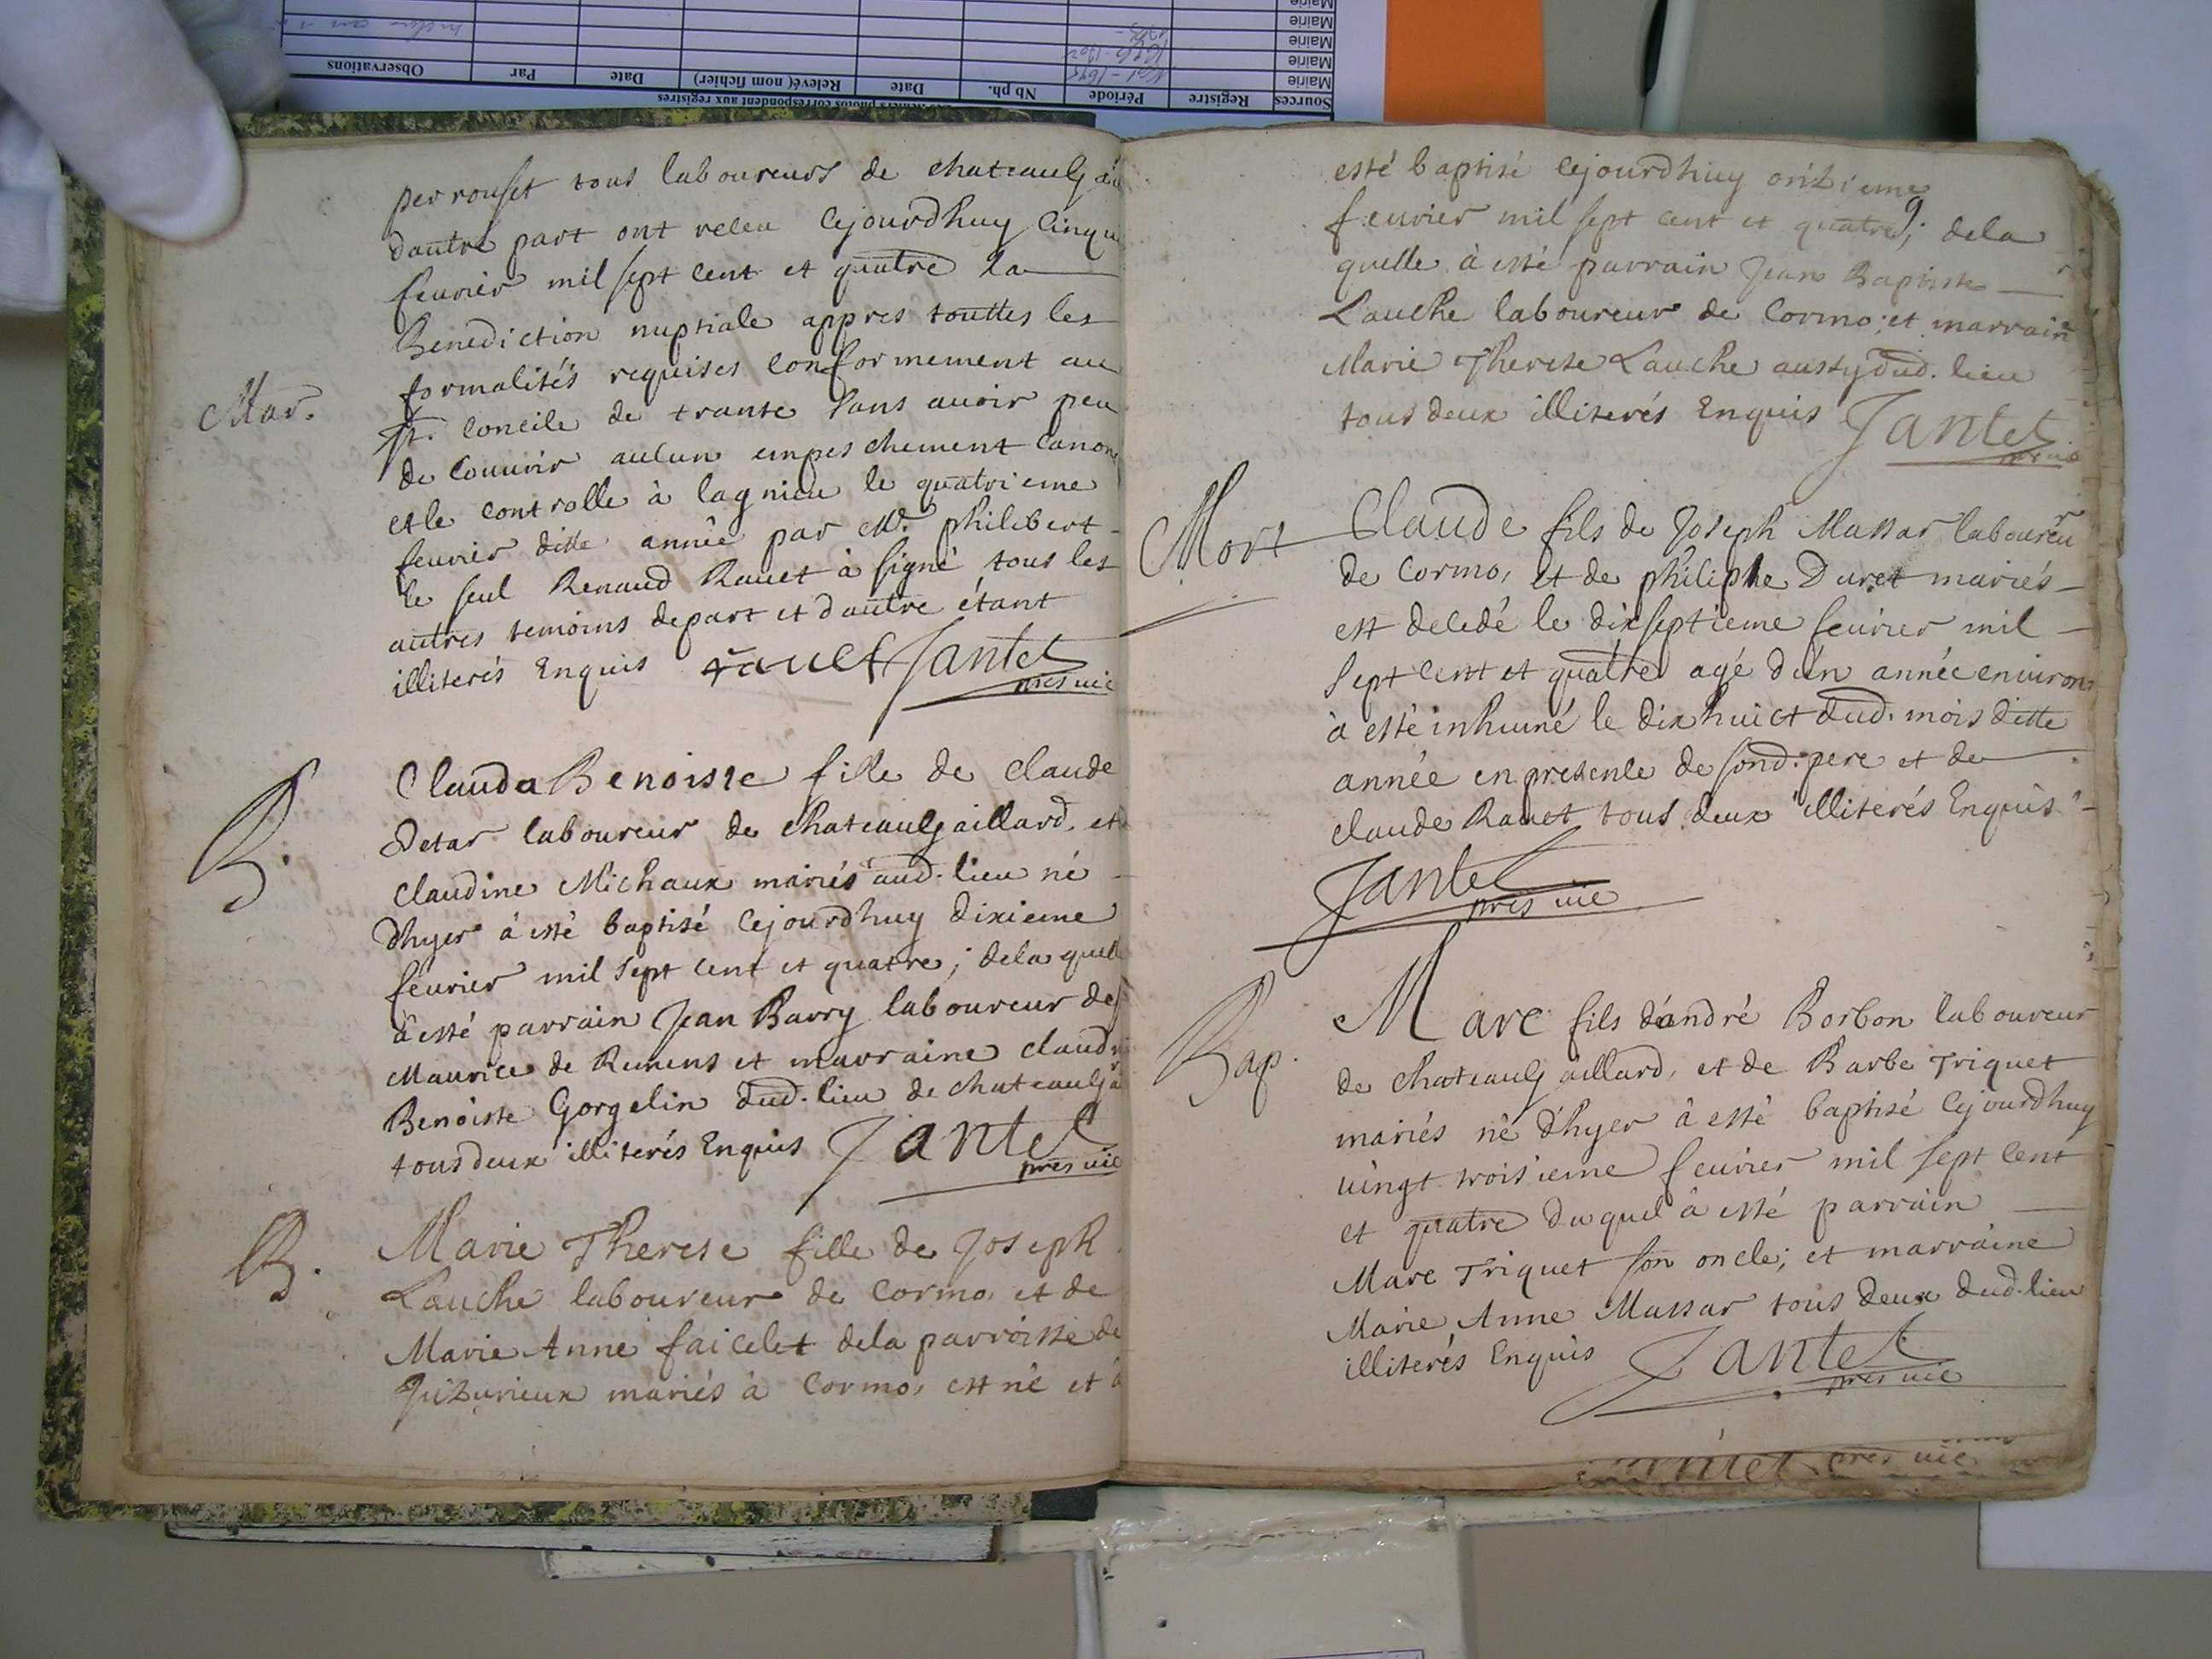 Sources Registre Période Nb ph. Date Relevé (nom fichier) Date Par Observations
Mairie
Mairie
Mairie
Mairie
Mairie
perrouset tous laboureurs de chateaulg
dautre part ont receu cejourdhuy cinqu
feurier mil sept cent et quatre la
Benediction nuptiale appres touttes les
formalités requises conformement au
Mar.
St. concile de trante sans auoir peu
de couurir aulcun empeschement canon
et le controlle à lagnieu le quatrieme
feurier ditte année par Mr. philibert
le seul Renaud Rauet à signé tous les
autres temoins depart et dautre étant
illiterés Enquis rauet Jantet
pres uic
B.
Clauda Benoiste fille de claude
Detar laboureur de chateaulgaillard, et
claudine Michaux mariés aud. lieu né
dhyer à esté baptisé cejourdhuy dixieme
feurier mil sept cent et quatre; dela quelle
à esté parrain Jean Barry laboureur de
Maurice de Remens et marraine claud
Benoiste Gorgelin dud. lieu de chateaulga
tous deux illiterés Enquis Jantet
pres uic
B.
Marie Therese fille de Joseph
Lauche laboureur de Cormo, et de
Marie Anne faicelet dela parroisse de
Juzurieux mariés à Cormo, est né et à
esté baptisé cejourdhuy onzieme
feurier mil sept cent et quatre; dela
quelle à esté parrain Jean Baptiste
Lauche laboureur de Cormo; et marrain
Marie Therese Lauche aussy dud. lieu
tous deux illiterés Enquis Jantet
pres uic
Mort
Claude fils de Joseph Massar laboureur
de Cormo, et de philiphe Duret mariés
est decedé le dixseptieme feurier mil
sept cent et quatre agé dún année enuiron
à esté inhumé le dixhuict dud. mois ditte
année en presente de sond. pere et de
claude Rauet tous deux illiterés Enquis
Jantet
pres uic
Bap.
Marc fils dándré Borbon laboureur
de chateaulgaillard, et de Barbe Triquet
mariés né dhyer à esté baptisé cejourdhuy
uingt troisieme feurier mil sept cent
et quatre duquel à esté parrain
Marc Triquet son oncle; et marraine
Marie Anne Massar tous deux dud. lieu
illiterés Enquis Jantet
pres uic
pres uic